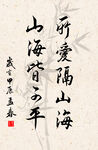 所愛隔山海
山海皆可平
歲在甲辰孟春